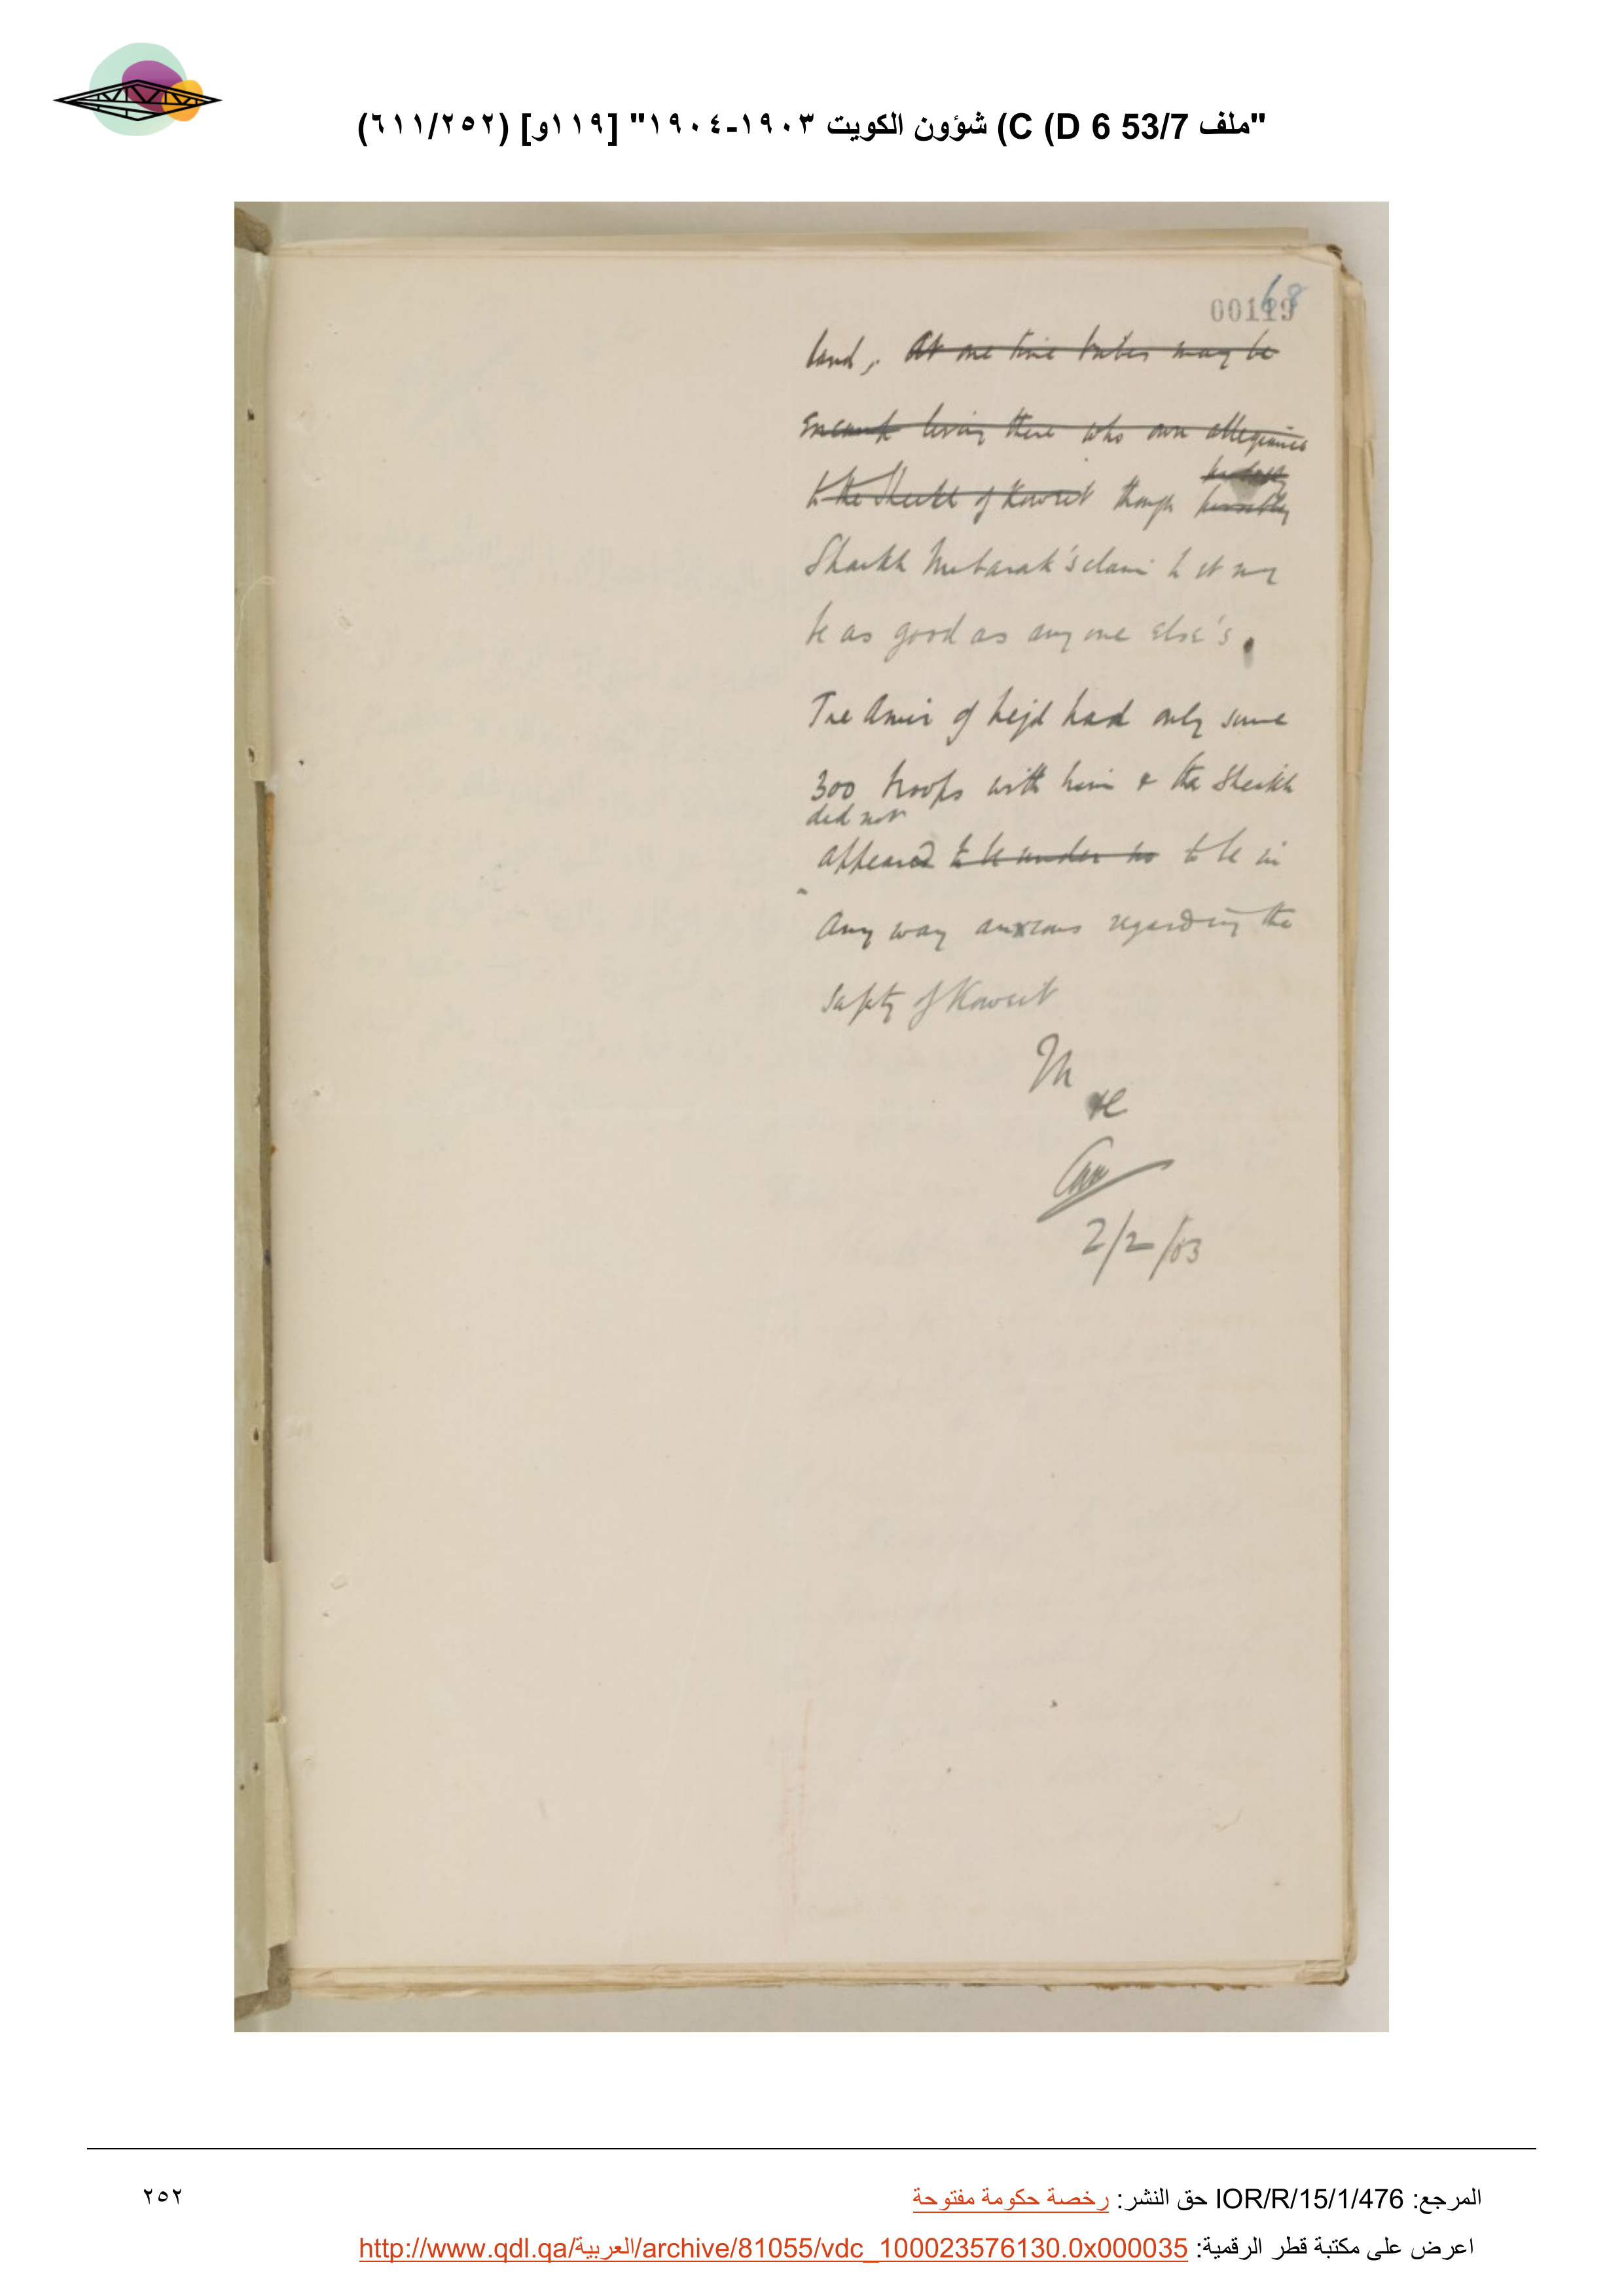 "ملف 53/7 C (D 6) شؤون الكويت ١٩٠٣-١٩٠٤" [١١٩و] (٦١١/٢٥٢)
68
00119
land, At one time tribes may be
encamp living there who own allegiance
to the Sheikh of Koweit though possibly
Shaikh Mubarak's claim to it may
be as good as any one else's.
The Amir of Nejd had only some
300 troops with him & the Sheikh
did not
appeared to be under no to be in
any way anxious regarding the
safety of Koweit
2/2/03
المرجع: IOR/R/15/1/476 حق النشر: رخصة حكومة مفتوحة
٢٥٢
اعرض على مكتبة قطر الرقمية: http://www.qdl.qa/العربية/archive/81055/vdc_100023576130.0x000035